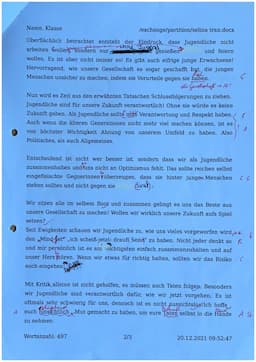 Name, Klasse /exchange/partition/selina tran.docx
Oberflächlich betrachtet entsteht der Eindruck, dass Jugendliche nicht
arbeiten wollen, sondern nur genießen und feiern
wollen. Es ist aber nicht immer so! Es gibt auch eifrige junge Erwachsene!
Hervorragend, wie unsere Gesellschaft so engar geschafft hat, die jungen
Menschen unsicher zu machen, indem sie Vorurteile gegen sie fallen.
Nun wird es Zeit aus den erwähnten Tatsachen Schlussfolgerungen zu ziehen.
Jugendliche sind für unsere Zukunft verantwortlich! Ohne sie würde es keine
Zukunft geben. Als Jugendliche sollte Verantwortung und Respekt haben.
Auch wenn die älteren Generationen nicht mehr viel machen können, ist es
von höchster Wichtigkeit Ahnung von unserem Umfeld zu haben. Also
Politisches, als auch Allgemeines.
Entscheidend ist nicht wer besser ist, sondern dass wir als Jugendliche
zusammenhalten und nicht an Optimismus fehlt. Das sollte reichen selbst
eingefleischte Gegner innen überzeugen, dass sie hinter jungen Menschen
stehen sollten und nicht gegen sie
Wir sitzen alle im selben Boot und zusammen gelingt es uns das Beste aus
unsere Gesellschaft zu machen! Wollen wir wirklich unsere Zukunft aufs Spiel
setzen?
Seit Ewigkeiten schauen wir Jugendliche zu, wie uns vieles vorgeworfen wird,
den „ ich scheiß jetzt drauf! Senf" zu haben. Nicht jeder denkt so
und mir persönlich ist es am wichtigsten einfach zusammenzuhalten und auf
unser Herz hören. Wenn wir etwas für richtig halten, sollten wir das Risiko
auch eingehen
Mit Kritik alleine ist nicht geholfen, es müssen auch Taten folgen. Besonders
wir Jugendliche sind verantwortlich dafür, wie wir jetzt vorgehen. Es ist
oftmals sehr schwierig für uns, dennoch ist es nicht
auch Mut gemacht zu haben, um eure Taten selbst in die Hände
zu nehmen.
Wortanzahl: 497 2/3 20.12.2021 09:52:47